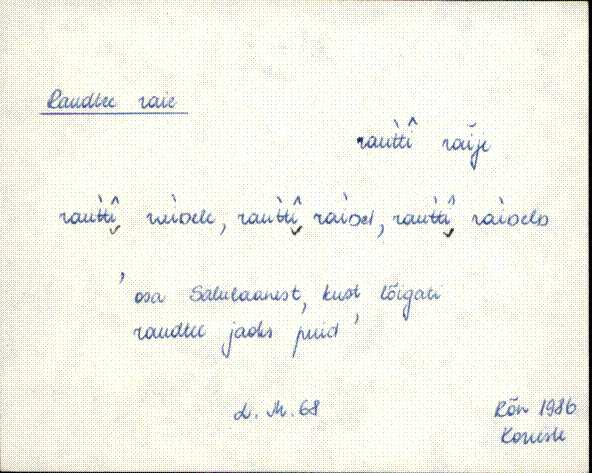 Raudtee raie
rautt̀î raĭje
rautt̀î ràiᴅele, rautt̀î ràiᴅel, rautt̀î ràiᴅelᴅ
' osa Salulaanest, kust lõigati
raudtee jaoks puid '
L. M. 68
Kõn 1986